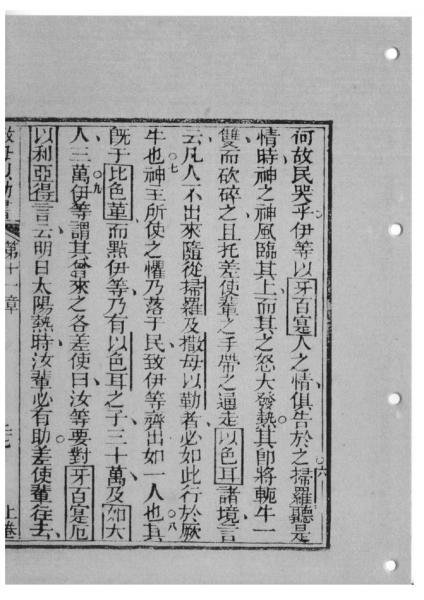 何故民哭乎伊等以牙百寔人之情俱告於之掃羅聽是
情時神之神風臨其上而其之怒大發熱其卽將軛牛一
雙而砍碎之且托差使輩之手帶之逼走以色耳諸境言
云凡人不出來隨從掃羅及撒母以勒者必如此行於厥
牛也神主所使之懼乃落于民致伊等齊出如一人也其
旣于比色革而點伊等乃有以色耳之子三十萬及如大
人三萬伊等謂其曾來之各差使曰汝等要對牙百寔厄
以利亞得言云明日太陽熱時汝輩必有助差使輩往去
撒母以勒書 第十一章 上卷
六
七
八
九